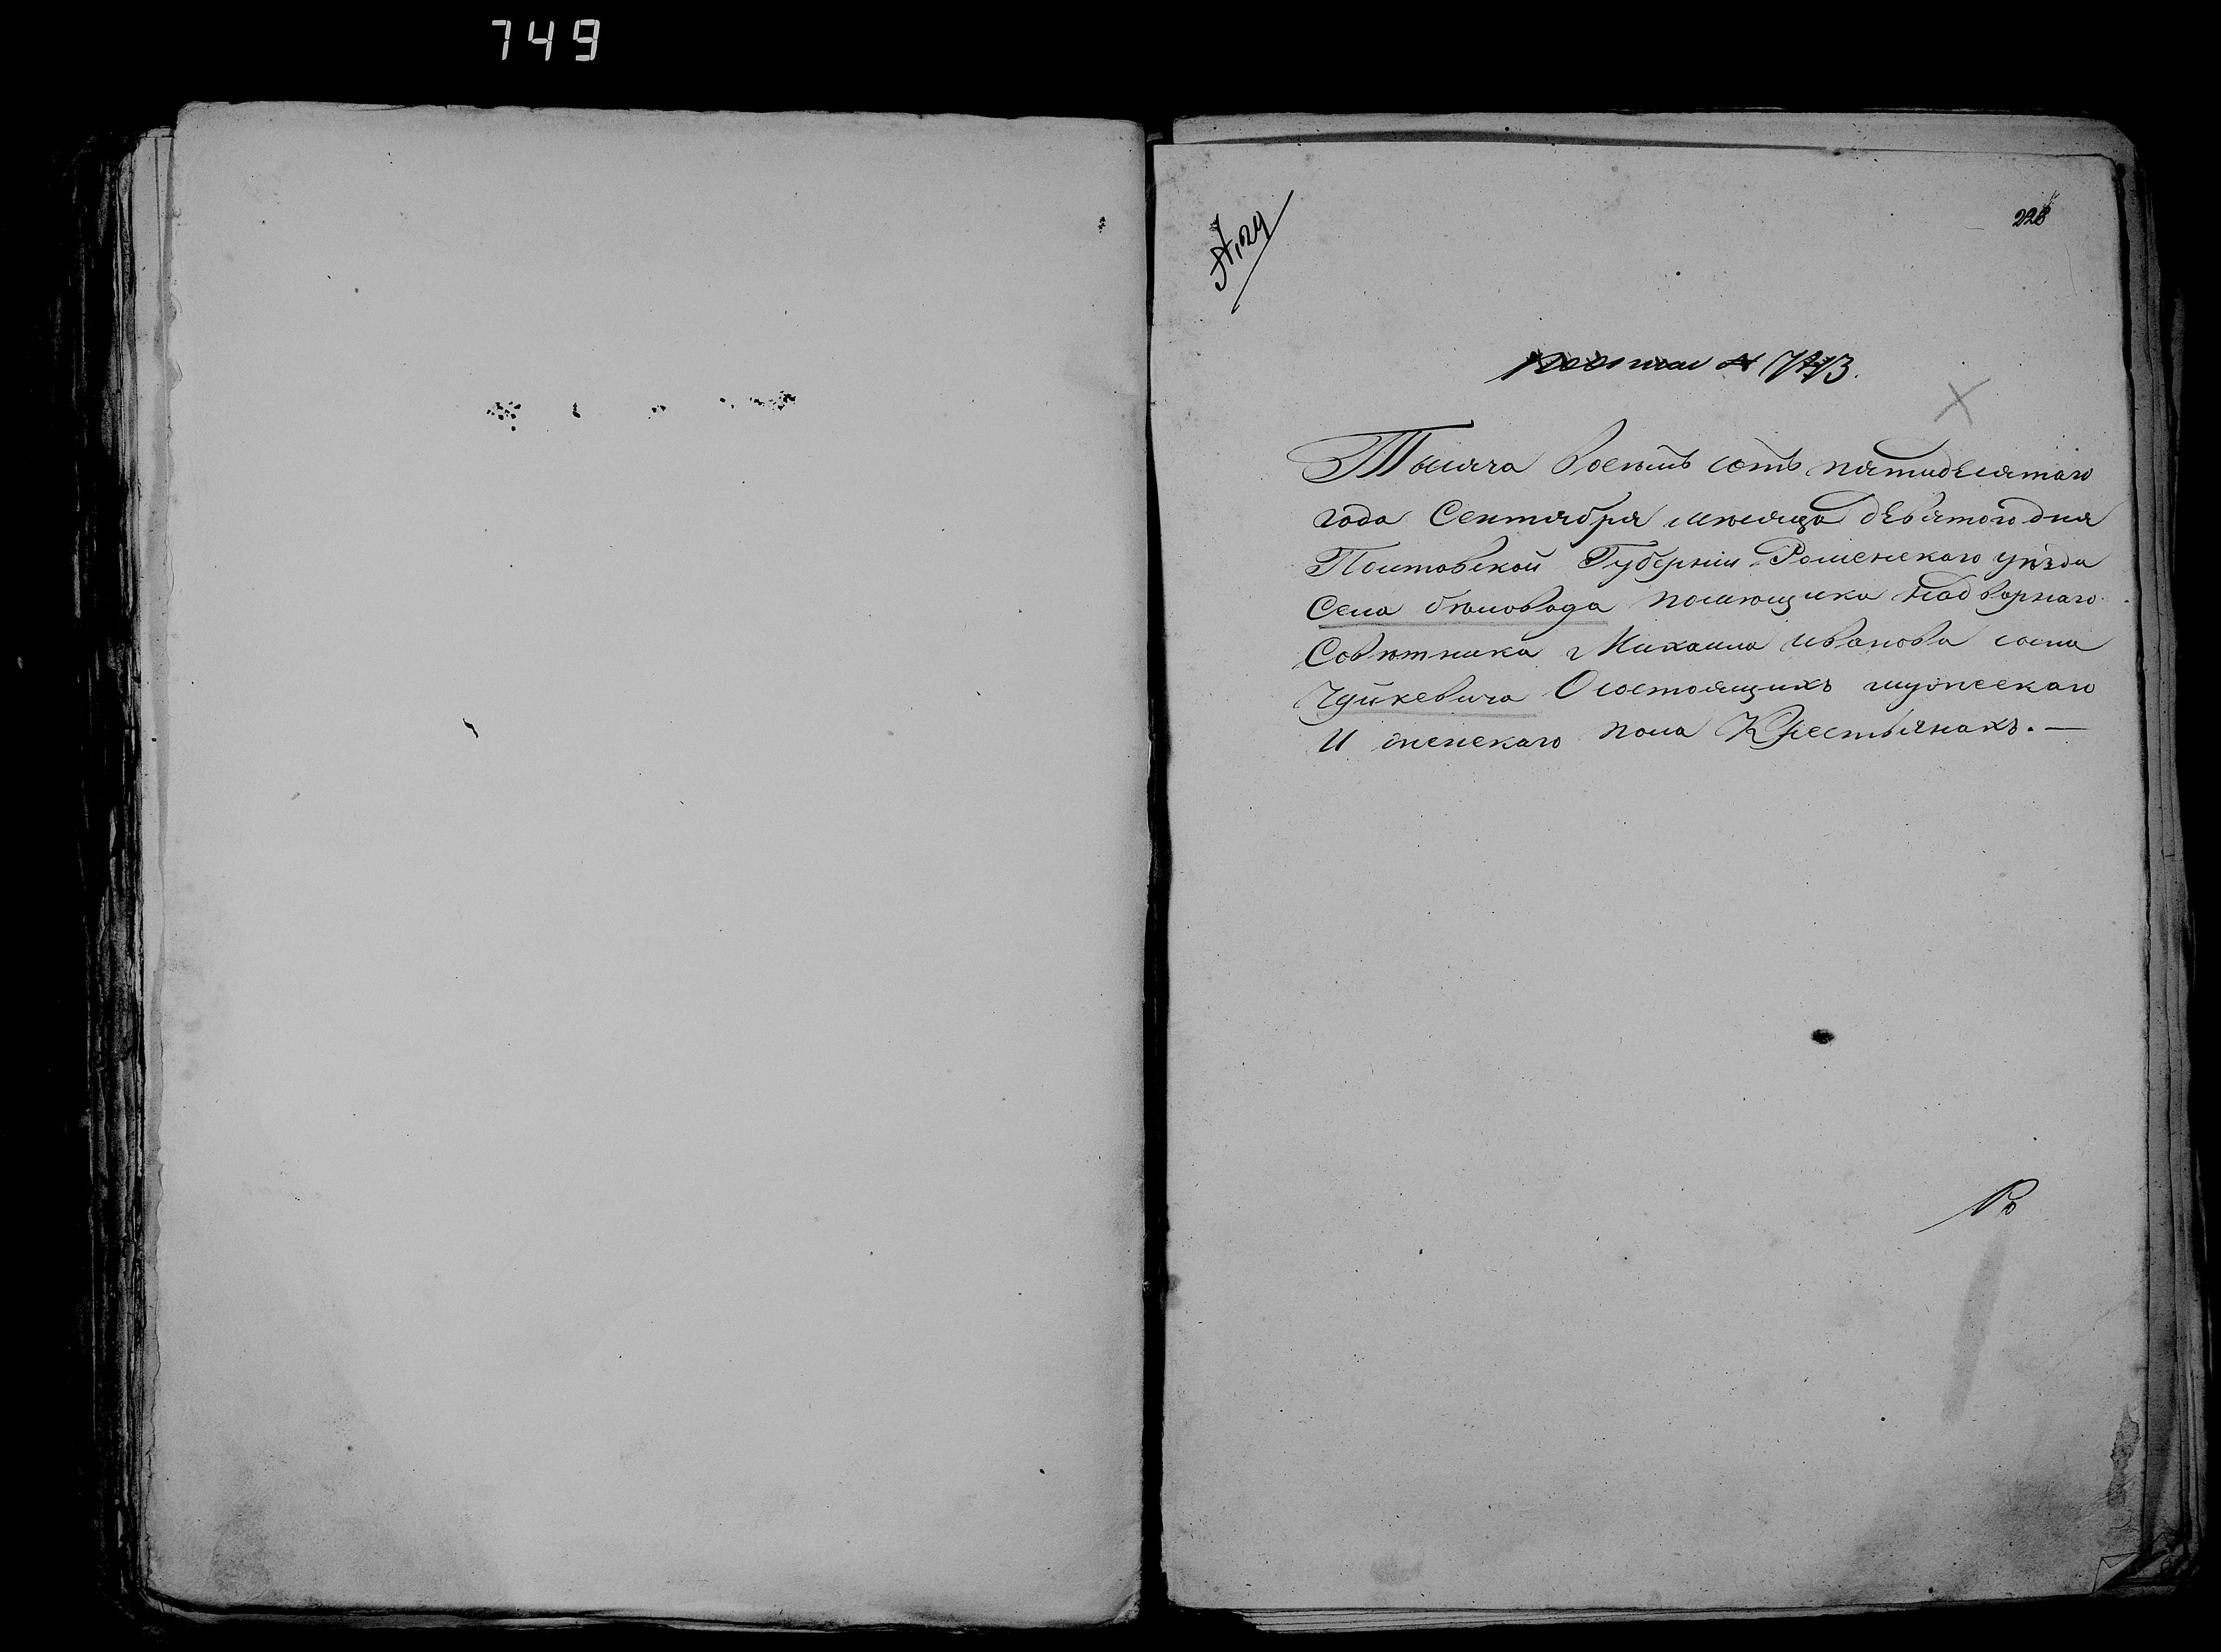 749
228
Тысяча восемь сотъ пятидесятаго
года Сентября мѣсяца девятого дня
Полтавской Губерніи Роменскаго уѣзда
Села бѣловода помѣщика Надворнаго
Совѣтника Михаила иванова сына
Чуйкевича О состоящихъ мужескаго
И женскаго пола Крестьянахъ. —